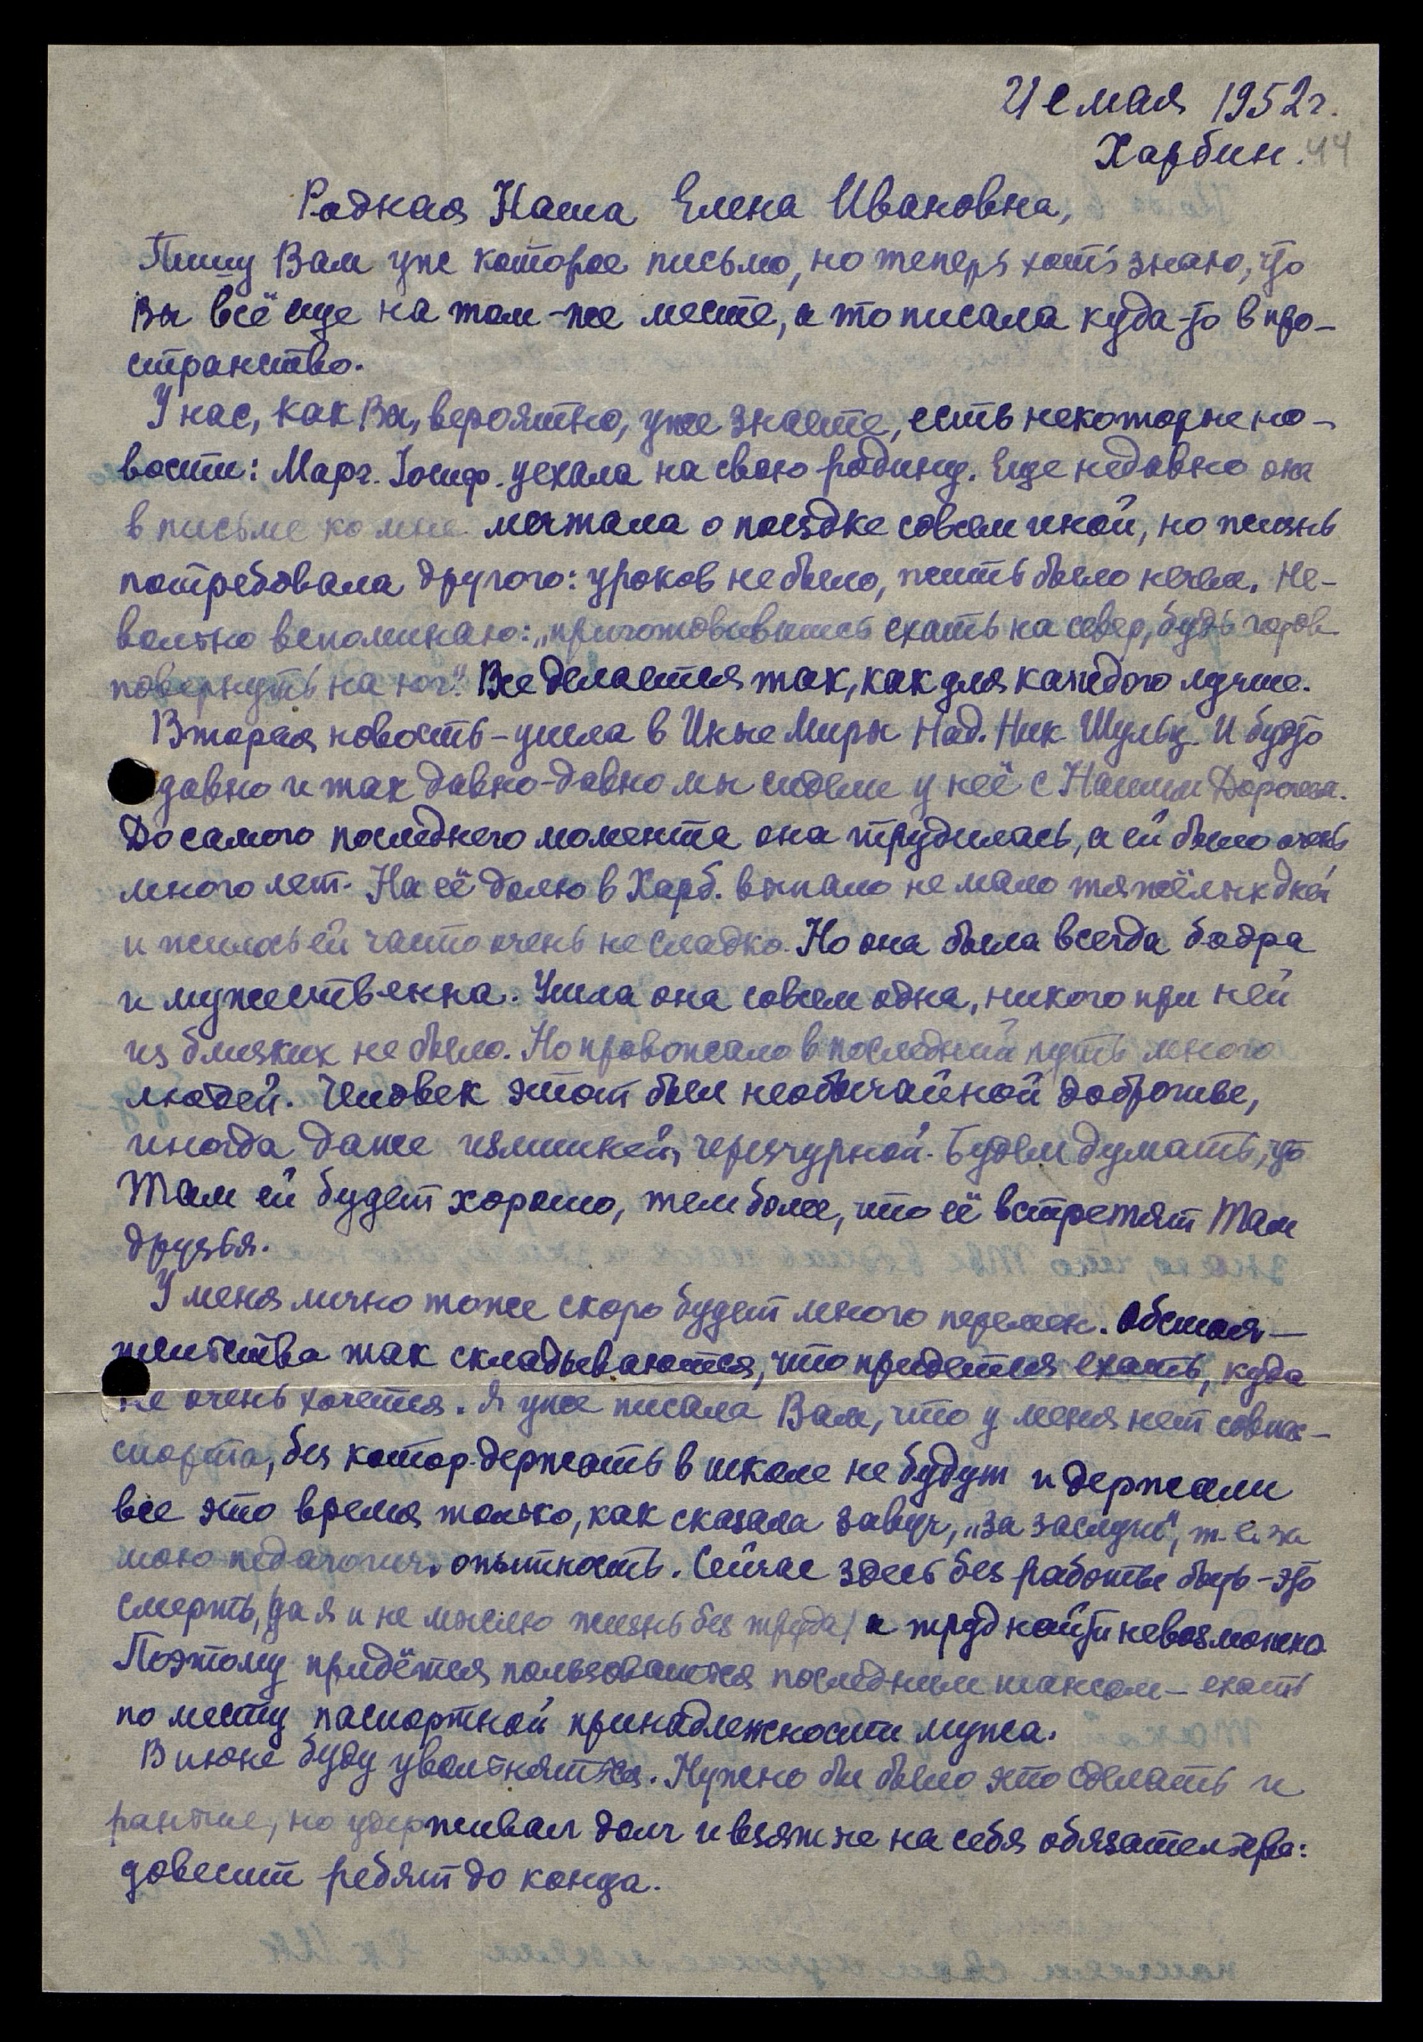 21 е мая 1952 г.
Харбин. 44
Родная Наша Елена Ивановна,
Пишу Вам уже которое письмо, но теперь хоть знаю, что
Вы всё еще на том-же месте, а то писала куда-то в про-
странство.
У нас, как Вы, вероятно, уже знаете, есть некоторые но-
вости: Марг. Іосиф. уехала на свою родину. Еще недавно она
в письме ко мне мечтала о поездке совсем иной, но жизнь
потребовала другого: уроков не было, жить было нечем. Не-
вольно вспоминаю: „приготовившись ехать на север, будь готов
повернуть на юг". Все делается так, как для каждого лучше.
Вторая новость – ушла в Иные Миры Над. Ник Шульц. И будто
давно и так давно-давно мы сидели у неё с Нашим Дорогим.
До самого последнего момента она трудилась, а ей было очень
много лет. На её долю в Харб. выпало не мало тяжёлых дней
и жилось ей часто очень не сладко. Но она была всегда бодра
и мужественна. Ушла она совсем одна, никого при ней
из близких не было. Но провожало в последний путь много
людей. Человек этот был необычайной доброты,
иногда даже излишней, чересчурной. Будем думать, что
Там ей будет хорошо, тем более, что её встретят Там
друзья.
У меня лично тоже скоро будет много перемен. Обстоя-
тельства так складываются, что придется ехать, куда
не очень хочется. Я уже писала Вам, что у меня нет совпас-
порта, без котор. держать в школе не будут и держали
все это время только, как сказала завуч, „за заслуги", т.е. за
мою педагогич. опытность. Сейчас здесь без работы быть – это
смерть, (да я и не мыслю жизнь без труда) а труд найти невозможно
Поэтому придётся пользоваться последним шансом – ехать
по месту паспортной принадлежности мужа.
В июне буду увольняться. Нужно бы было это сделать и
раньше, но удерживал долг и взятые на себя обязательства:
довести ребят до конца.